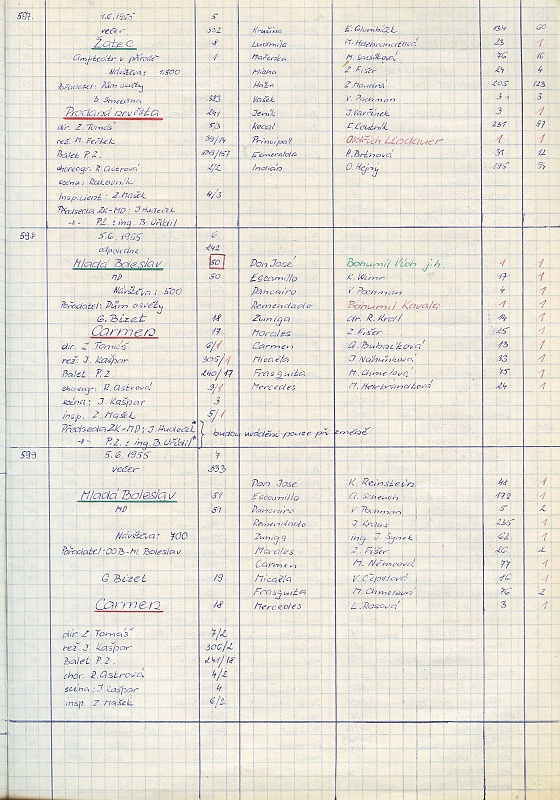 597 4.6.1955 5
večer 332 Krušina E. Olombíček 134 60
Žatec 8 Ludmila M. Hdebrandtová 23 1
Amfiteatr v přírodě 1 Mařenka M. Sadílková 76 16
Návštěva: 1.500 Mícha Z. Fišer 24 4
Pořadatel: Dům osvěty Háta Z. Moudrá 205 123
B. Smetana 383 Vašek V. Pochman 3 3
Prodaná nevěsta 241 Jeník J. Vavřínek 3 1
dir. Z. Tomáš 5/3 Kecal E. Loutník 231 57
rež. M. Feřtek 39/14 Principál Oldřich Lindauer 1 1
Balet P.Z. 239/157 Esmeralda H. Brtnová 31 12
choreogr. R. Astrová 2/2 Indián O. Hejný 195 54
scena: Rakovník
Inspicient: Z. Mašek 4/3
Předseda ZK-MD: J. Hudeček
-"- P.Z.: ing. B. Uřídil
598 5.6.1955 6
odpoledne 242
Mladá Boleslav 50 Don José Bohumil Vich j.h. 1 1
MD 50 Escamillo K. Wünn 17 1
Návštěva: 500 Dancairo V. Pochman 4 1
Pořadatel: Dům osvěty Remendado Bohumil Kavala 1 1
G. Bizet 18 Zuniga dr. R. Krall 14 1
Carmen 17 Morales Z. Fišer 25 1
dir. Z. Tomáš 6/1 Carmen A. Bubníková 13 1
rež. J. Kašpar 305/1 Micaëla J. Náhunková 33 1
Balet P.Z. 240/17 Frasquita M. Chmelová 75 1
choreogr. R. Astrová 3/1 Mercedes M. Hdebrandtová 24 1
scéna: J. Kašpar 3
insp. Z. Mašek 5/1
Předseda ZK-MD: J. Hudeček*
-"- P.Z.: ing. B. Uřídil* } budou uváděni pouze při změně
599 5.6.1955 7
večer 333
Don José K. Reinstein 48 1
Mladá Boleslav 51 Escamillo A. Scheuch 172 1
MD 51 Dancairo V. Pochman 5 2
Remendado J. Kraus 235 1
Návštěva: 700 Zuniga ing. J. Synek 62 1
Pořadatel: OOB-Ml. Boleslav Morales Z. Fišer 26 2
Carmen M. Němcová 77 1
G. Bizet 19 Micaëla V. Čepelová 16 1
Frasquita M. Chmelová 76 2
Carmen 18 Mercedes L. Rosová 3 1
dir. Z. Tomáš 7/2
rež. J. Kašpar 306/2
Balet P.Z. 241/18
chor. R. Astrová 4/2
scéna: J. Kašpar 4
insp. Z. Mašek 6/2